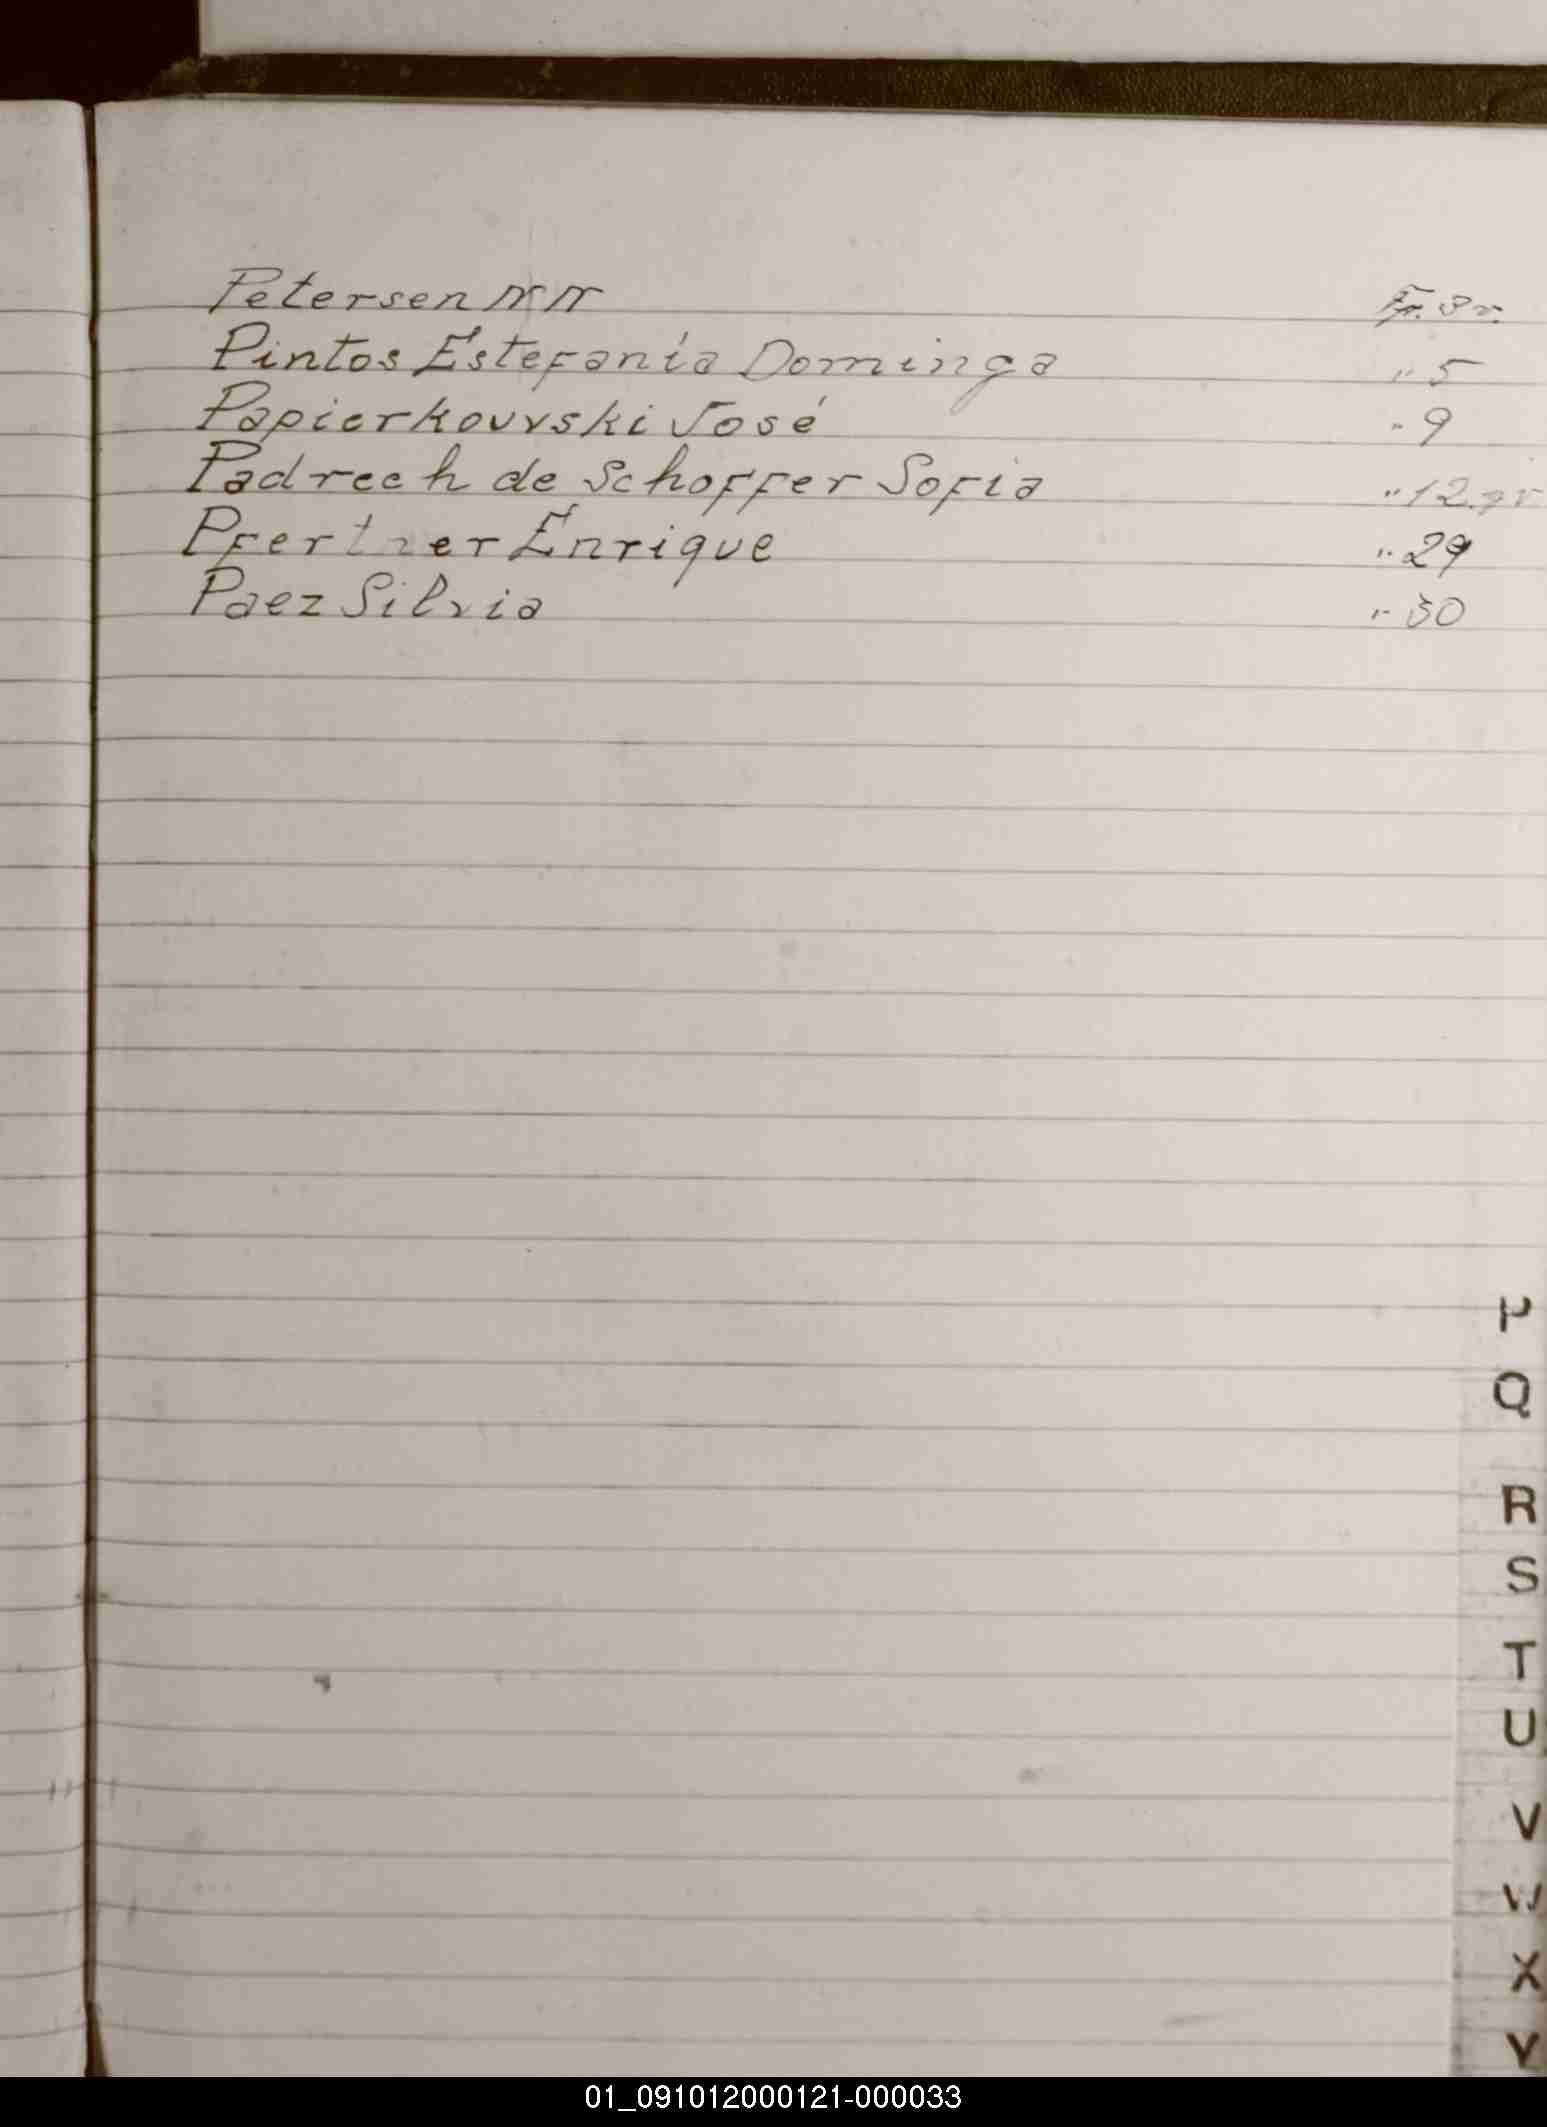 Petersen NN Fr. 3 v.
Pintos Estefanía Dominga " 5
Papierkouvski José " 9
Padrech de Schoffer Sofia " 12.
Pfertner Enrique " 29
Paez Silvia " 30
P
Q
R
S
T
U
V
W
X
Y
01_091012000121-000033